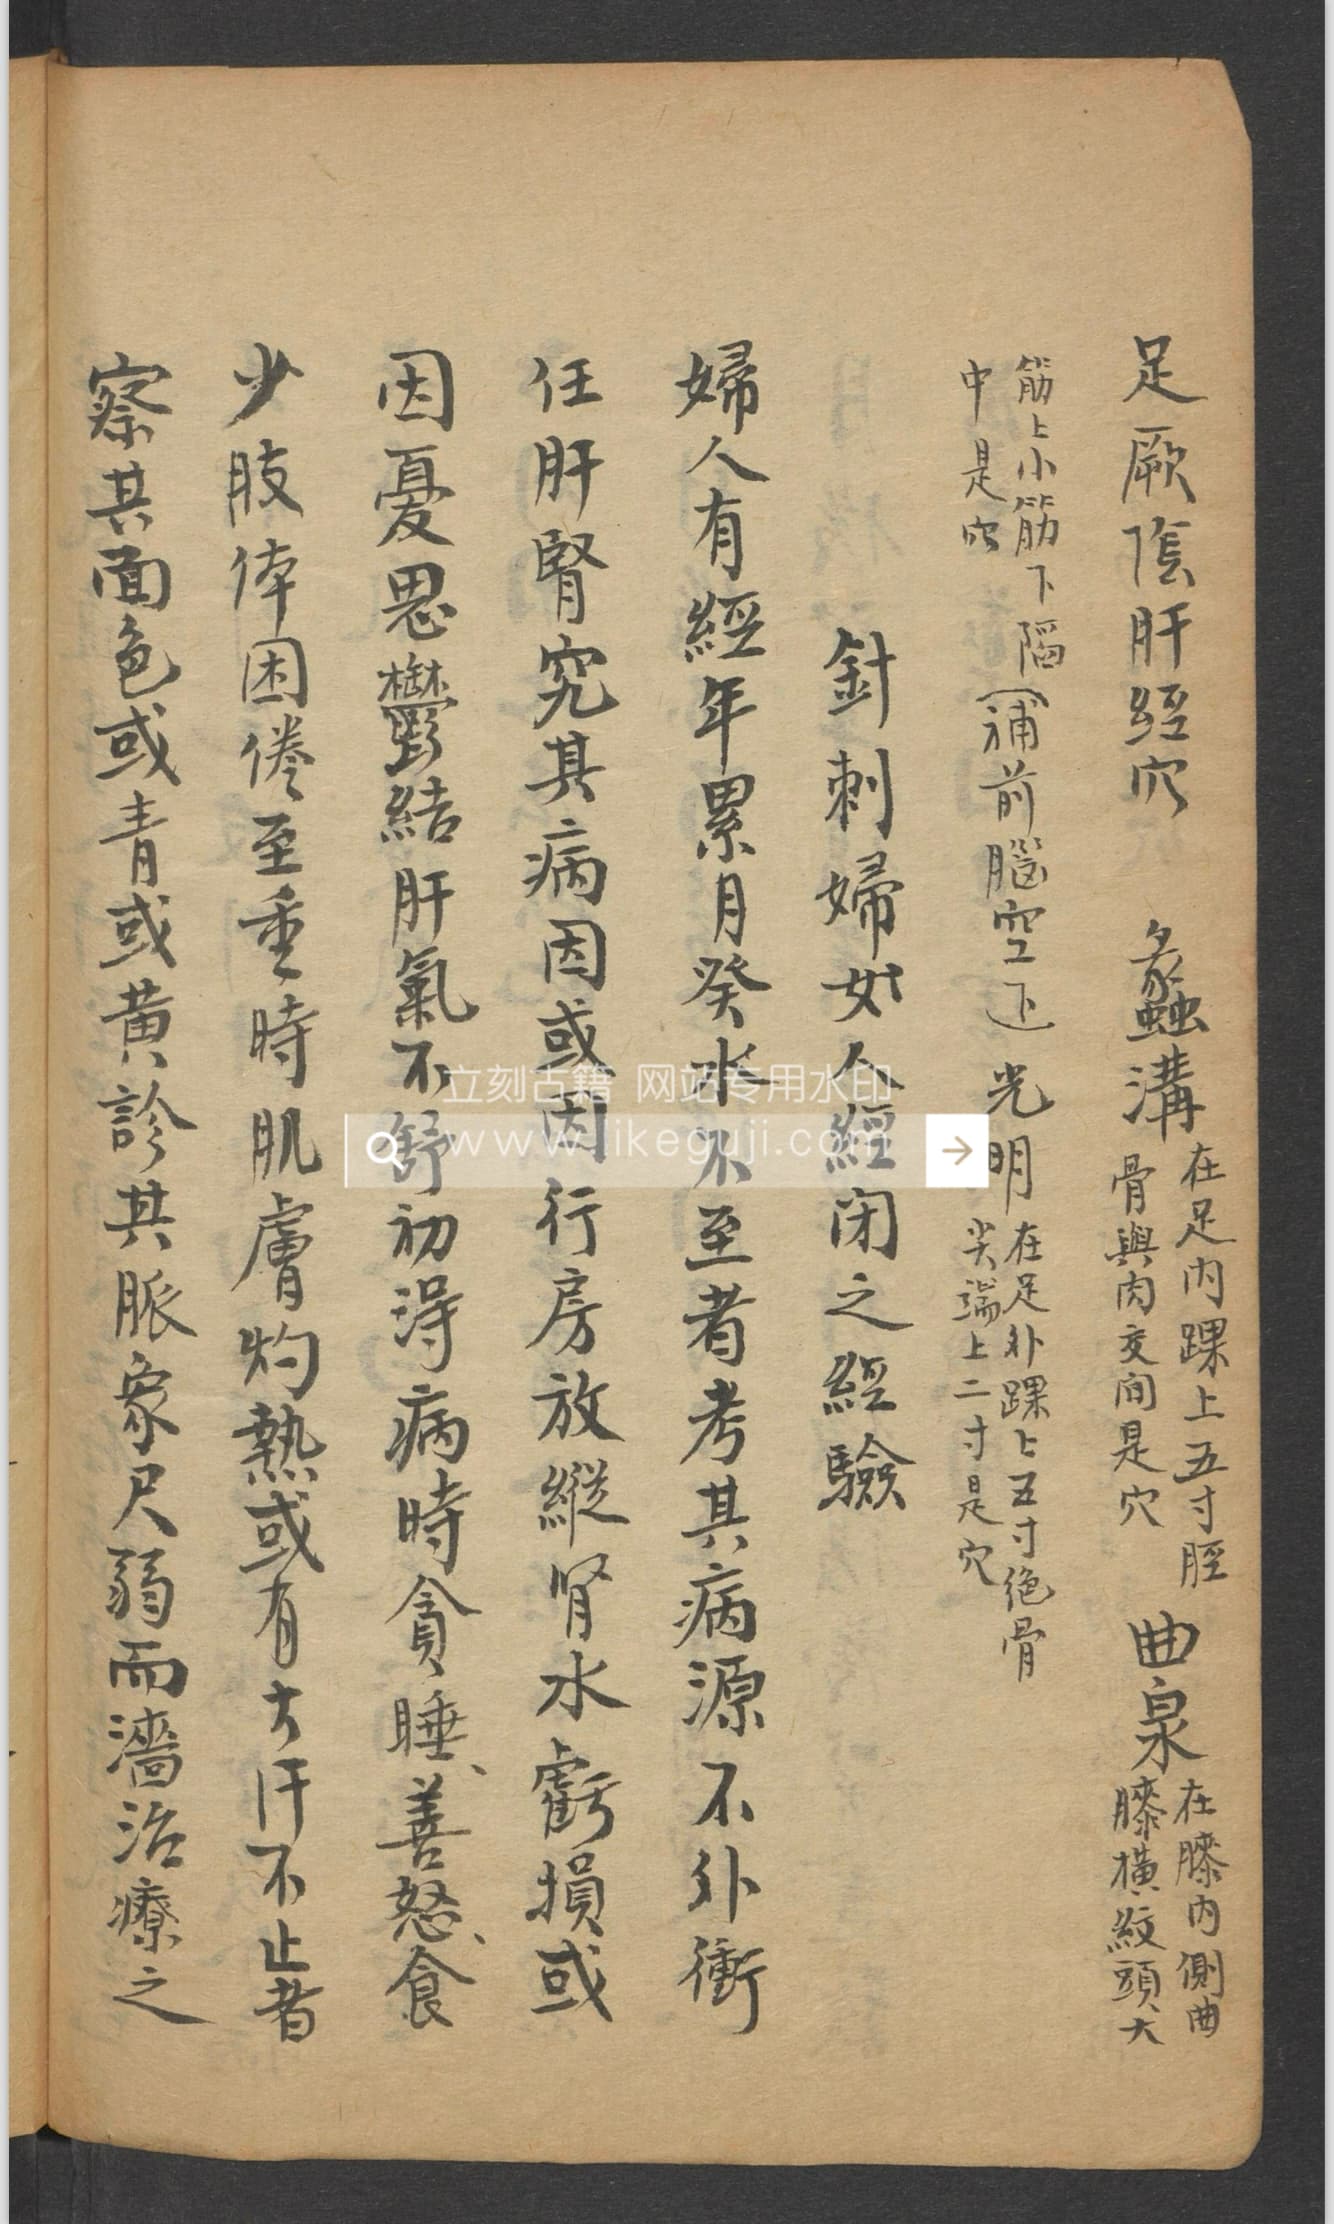 足厥陰肝經穴 蠡溝 在足內踝上五寸脛
骨與肉交間是穴 曲泉 在膝內側曲
膝橫紋頭大
筋上小筋下陷
中是穴 (補前腦空下) 光明 在足外踝上五寸絕骨
尖端上二寸是穴
針刺婦女人經閉之經驗
婦人有經年累月癸水不至者考其病源不外衝
任肝腎究其病因或因行房放縱腎水虧損或
因憂思鬱結肝氣不舒初淂病時貪睡、善怒、食
少肢体困倦至重時肌膚灼熱或有大汗不止者
察其面色或青或黄診其脈象尺弱而濇治療之
立刻古籍 网站专用水印
www.likeguji.com